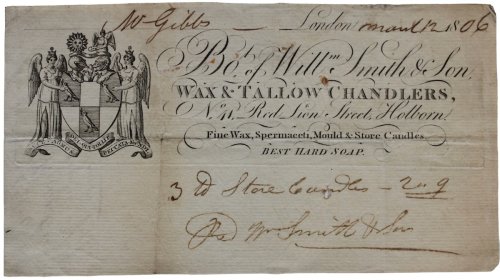 Mr Gibbs — London March 12 1806
Bot. of Willm. Smith & Son,
WAX & TALLOW CHANDLERS,
Red Lion Street, Holborn.
Fine Wax, Spermaceti, Mould & Store Candles.
BEST HARD SOAP.
3 lb Store Candles — 2 . 9
Wm Smith & Son